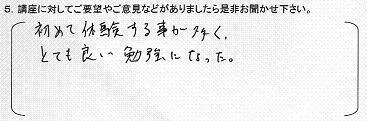 5. 講座に対してご要望やご意見などがありましたら是非お聞かせ下さい。
初めて体験する事が多く、
とても良い勉強になった。